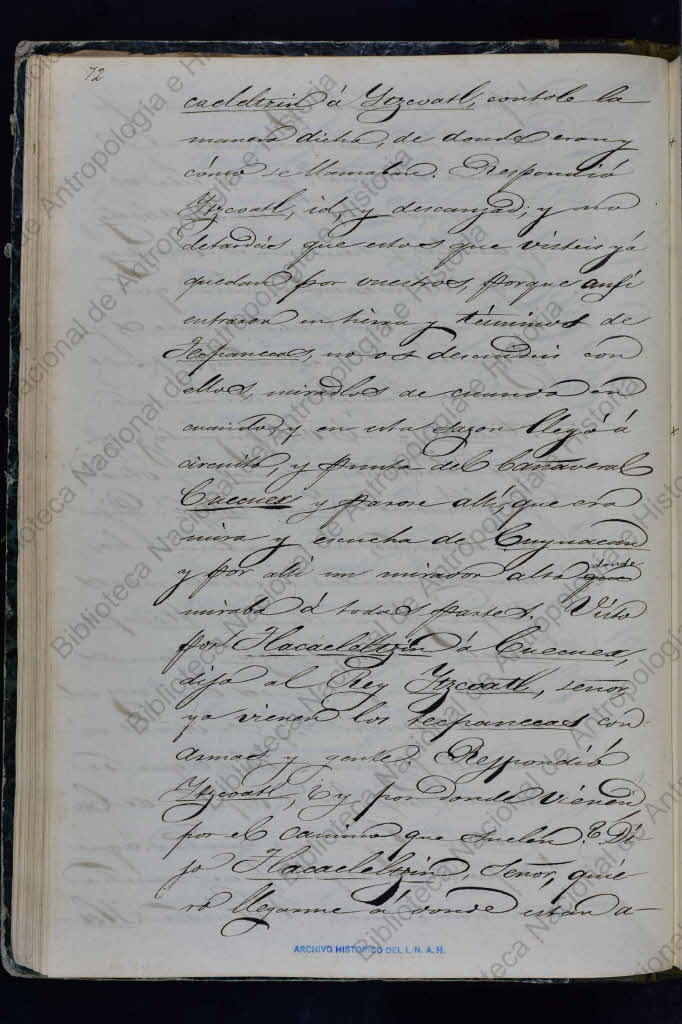 72
caeleltzin á Ytzcoatl, contole la
manera dicha, de donde eran y
cómo se llamaban. Respondió
Ytzcoatl, id, y descanzad; y no
detardéis que estos que visteis yá
quedan por vuestros, porque ansi
entraron en tierra y términos de
Tecpanecas, no os descuideis con
ellos, miradlos de cuando en
cuando, y en esta sazon llegó á
circuito, y punta del Cañaveral
Cuecuex y parose allí, que era
mira y escucha de Cuyuacan
y por allí un mirador alto donde
miraba á todas partes. Visto
por Tlacaeleltzin á Cuecuex,
dijo al Rey Ytzcoatl, señor,
ya vienen los tecpanecas con
armas y gente. Respondió
Ytzcoatl, ¿y por donde vienen
por el camino que suelen? Di-
jo Tlacaeleltzin, Señor, quie-
ro llegarme á donde estan a-
ARCHIVO HISTORICO DEL I. N. A. H.
Biblioteca Nacional de Antropología e Historia